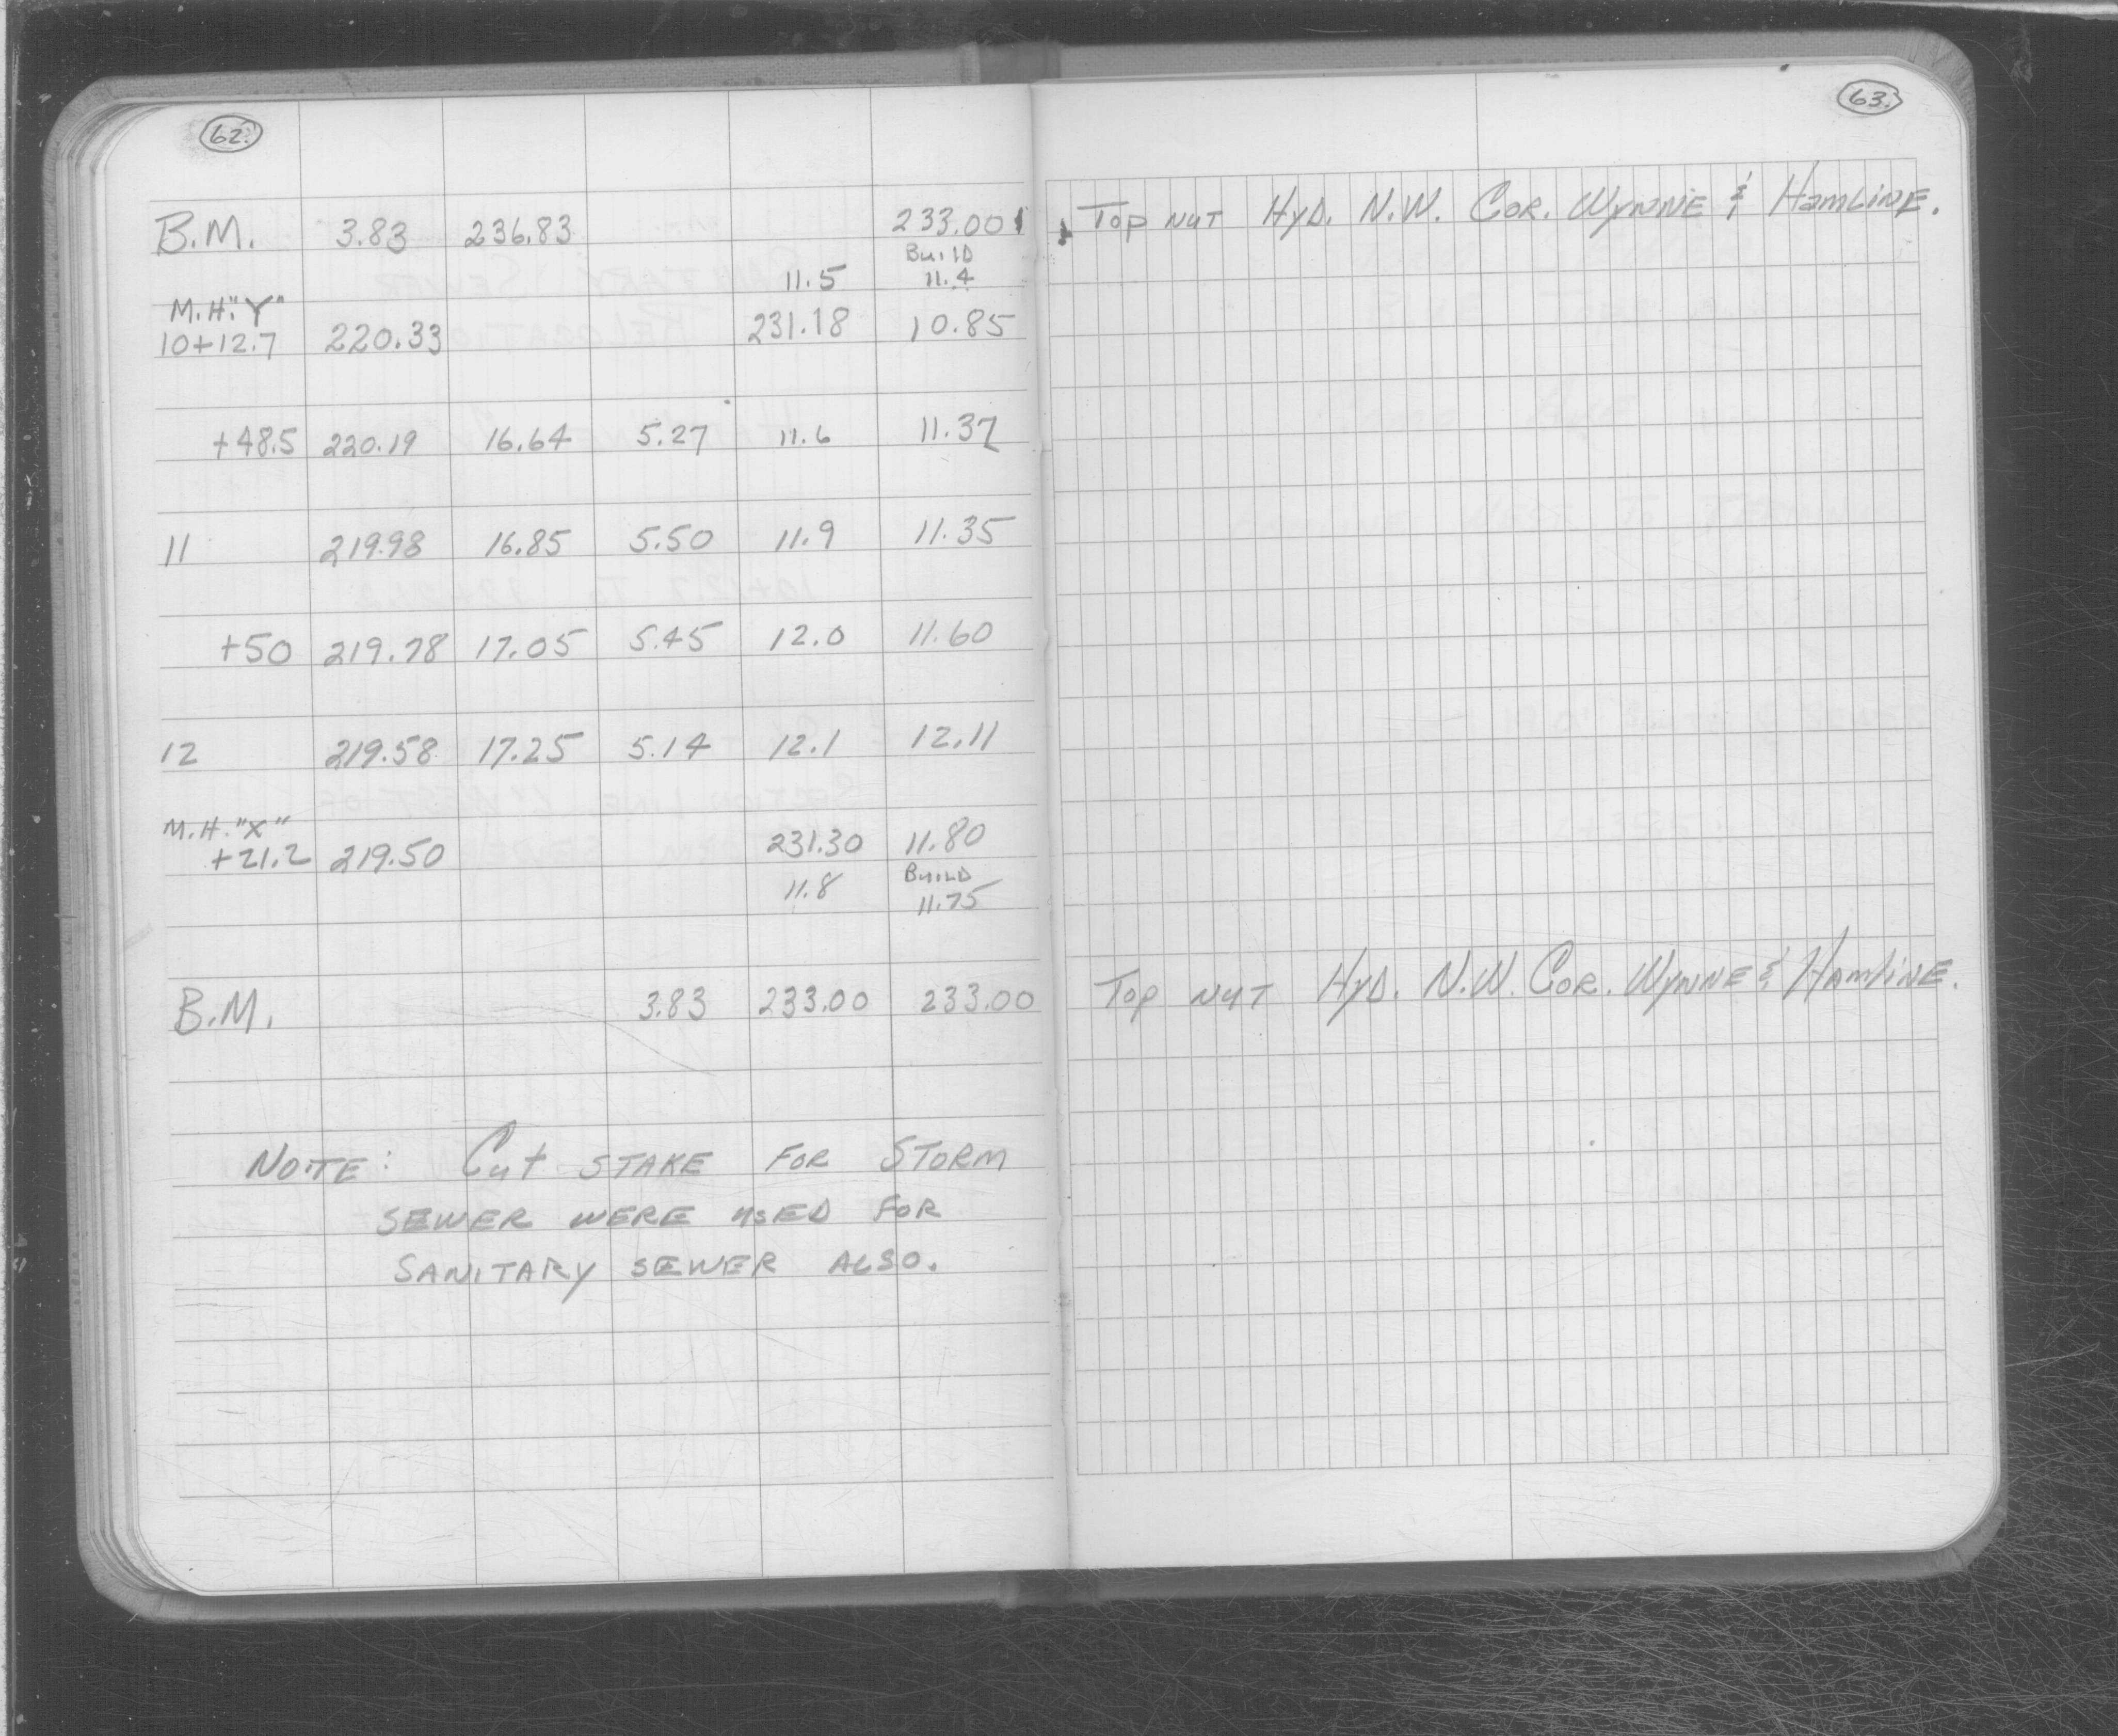 62.
B.M. 3.83 236.83 233.00
11.5 Build 11.4
M.H. "Y"
10+12.7 220.33 231.18 10.85
+48.5 220.19 16.64 5.27 11.6 11.37
11 219.98 16.85 5.50 11.9 11.35
+50 219.78 17.05 5.45 12.0 11.60
12 219.58 17.25 5.14 12.1 12.11
M.H. "X"
+21.2 219.50 231.30 11.80
11.8 BUILD 11.75
B.M. 3.83 233.00 233.00
NOTE: Cut STAKE FOR STORM
SEWER WERE USED FOR
SANITARY SEWER ALSO.
63.
Top NUT HYD. N.W. COR. WYNNE & HAMLINE.
Top NUT HYD. N.W. COR. WYNNE & HAMLINE.